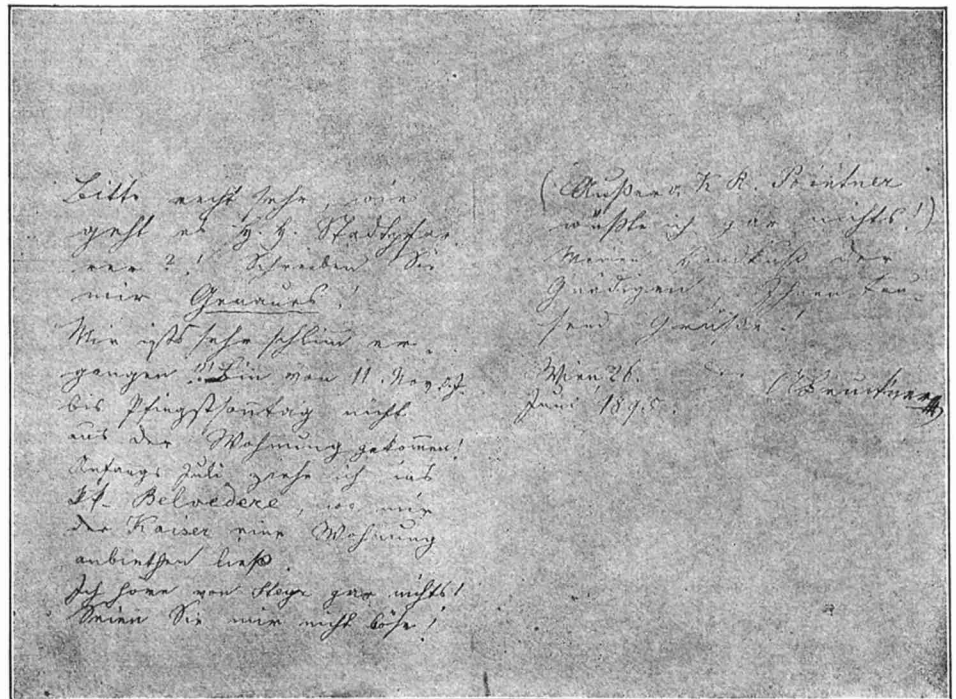 Bitte recht sehr, wie
geht es H. H. Stadtpfar-
rer?! Schreiben Sie
mir Genaues!
Mir ists sehr schlimm er-
gangen!!! Bin von 11. Nov. v. J.
bis Pfingstsonntag nicht
aus der Wohnung gekommen!
Anfangs Juli ziehe ich ins
k. k. Belvedere, wo mir
der Kaiser eine Wohnung
anbiethen ließ.
Ich höre von Steyr gar nichts!
Seien Sie mir nicht böse!
(Außer v. K. R. Pointner
wüßte ich gar nichts!)
Meinen Handkuß der
Gnädigen, Ihnen tau-
send Grüße!
Wien, 26.
Juni 1895.
ABruckner